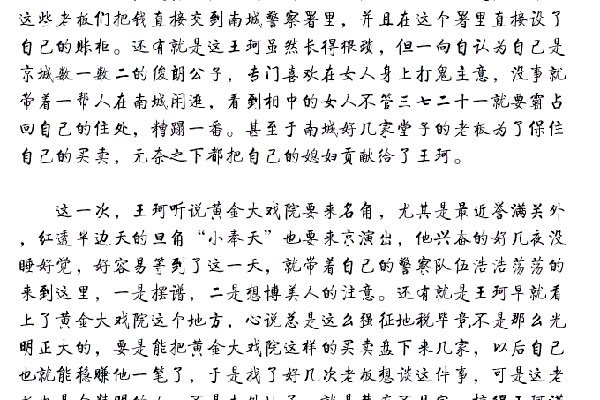 这些老板们把钱直接交到南城警察署里，并且在这个署里直接设了
自己的账柜。还有就是这王珂虽然长得很孬，但一向自认为自己是
京城数一数二的俊朗公子，专门喜欢在女人身上打鬼主意，没事就
带着一帮人在南城闲逛，看到相中的女人不管三七二十一就要霸占
回自己的住处，糟蹋一番。甚至于南城好几家堂子的老板为了保住
自己的买卖，无奈之下都把自己的媳妇贡献给了王珂。
这一次，王珂听说黄金大戏院要来名角，尤其是最近誉满关外
，红透半边天的旦角“小奉天”也要来京演出，他兴奋的好几夜没
睡好觉，好容易等到了这一天，就带着自己的警察队伍浩浩荡荡的
来到这里，一是摆谱，二是想博美人的注意。还有就是王珂早就看
上了黄金大戏院这个地方，心说总是这么强征地税毕竟不是那么光
明正大的，要是能把黄金大戏院这样的买卖盘下来几家，以后自己
也就能稳赚他一笔了，于是找了好几次老板想谈这件事，可是这老